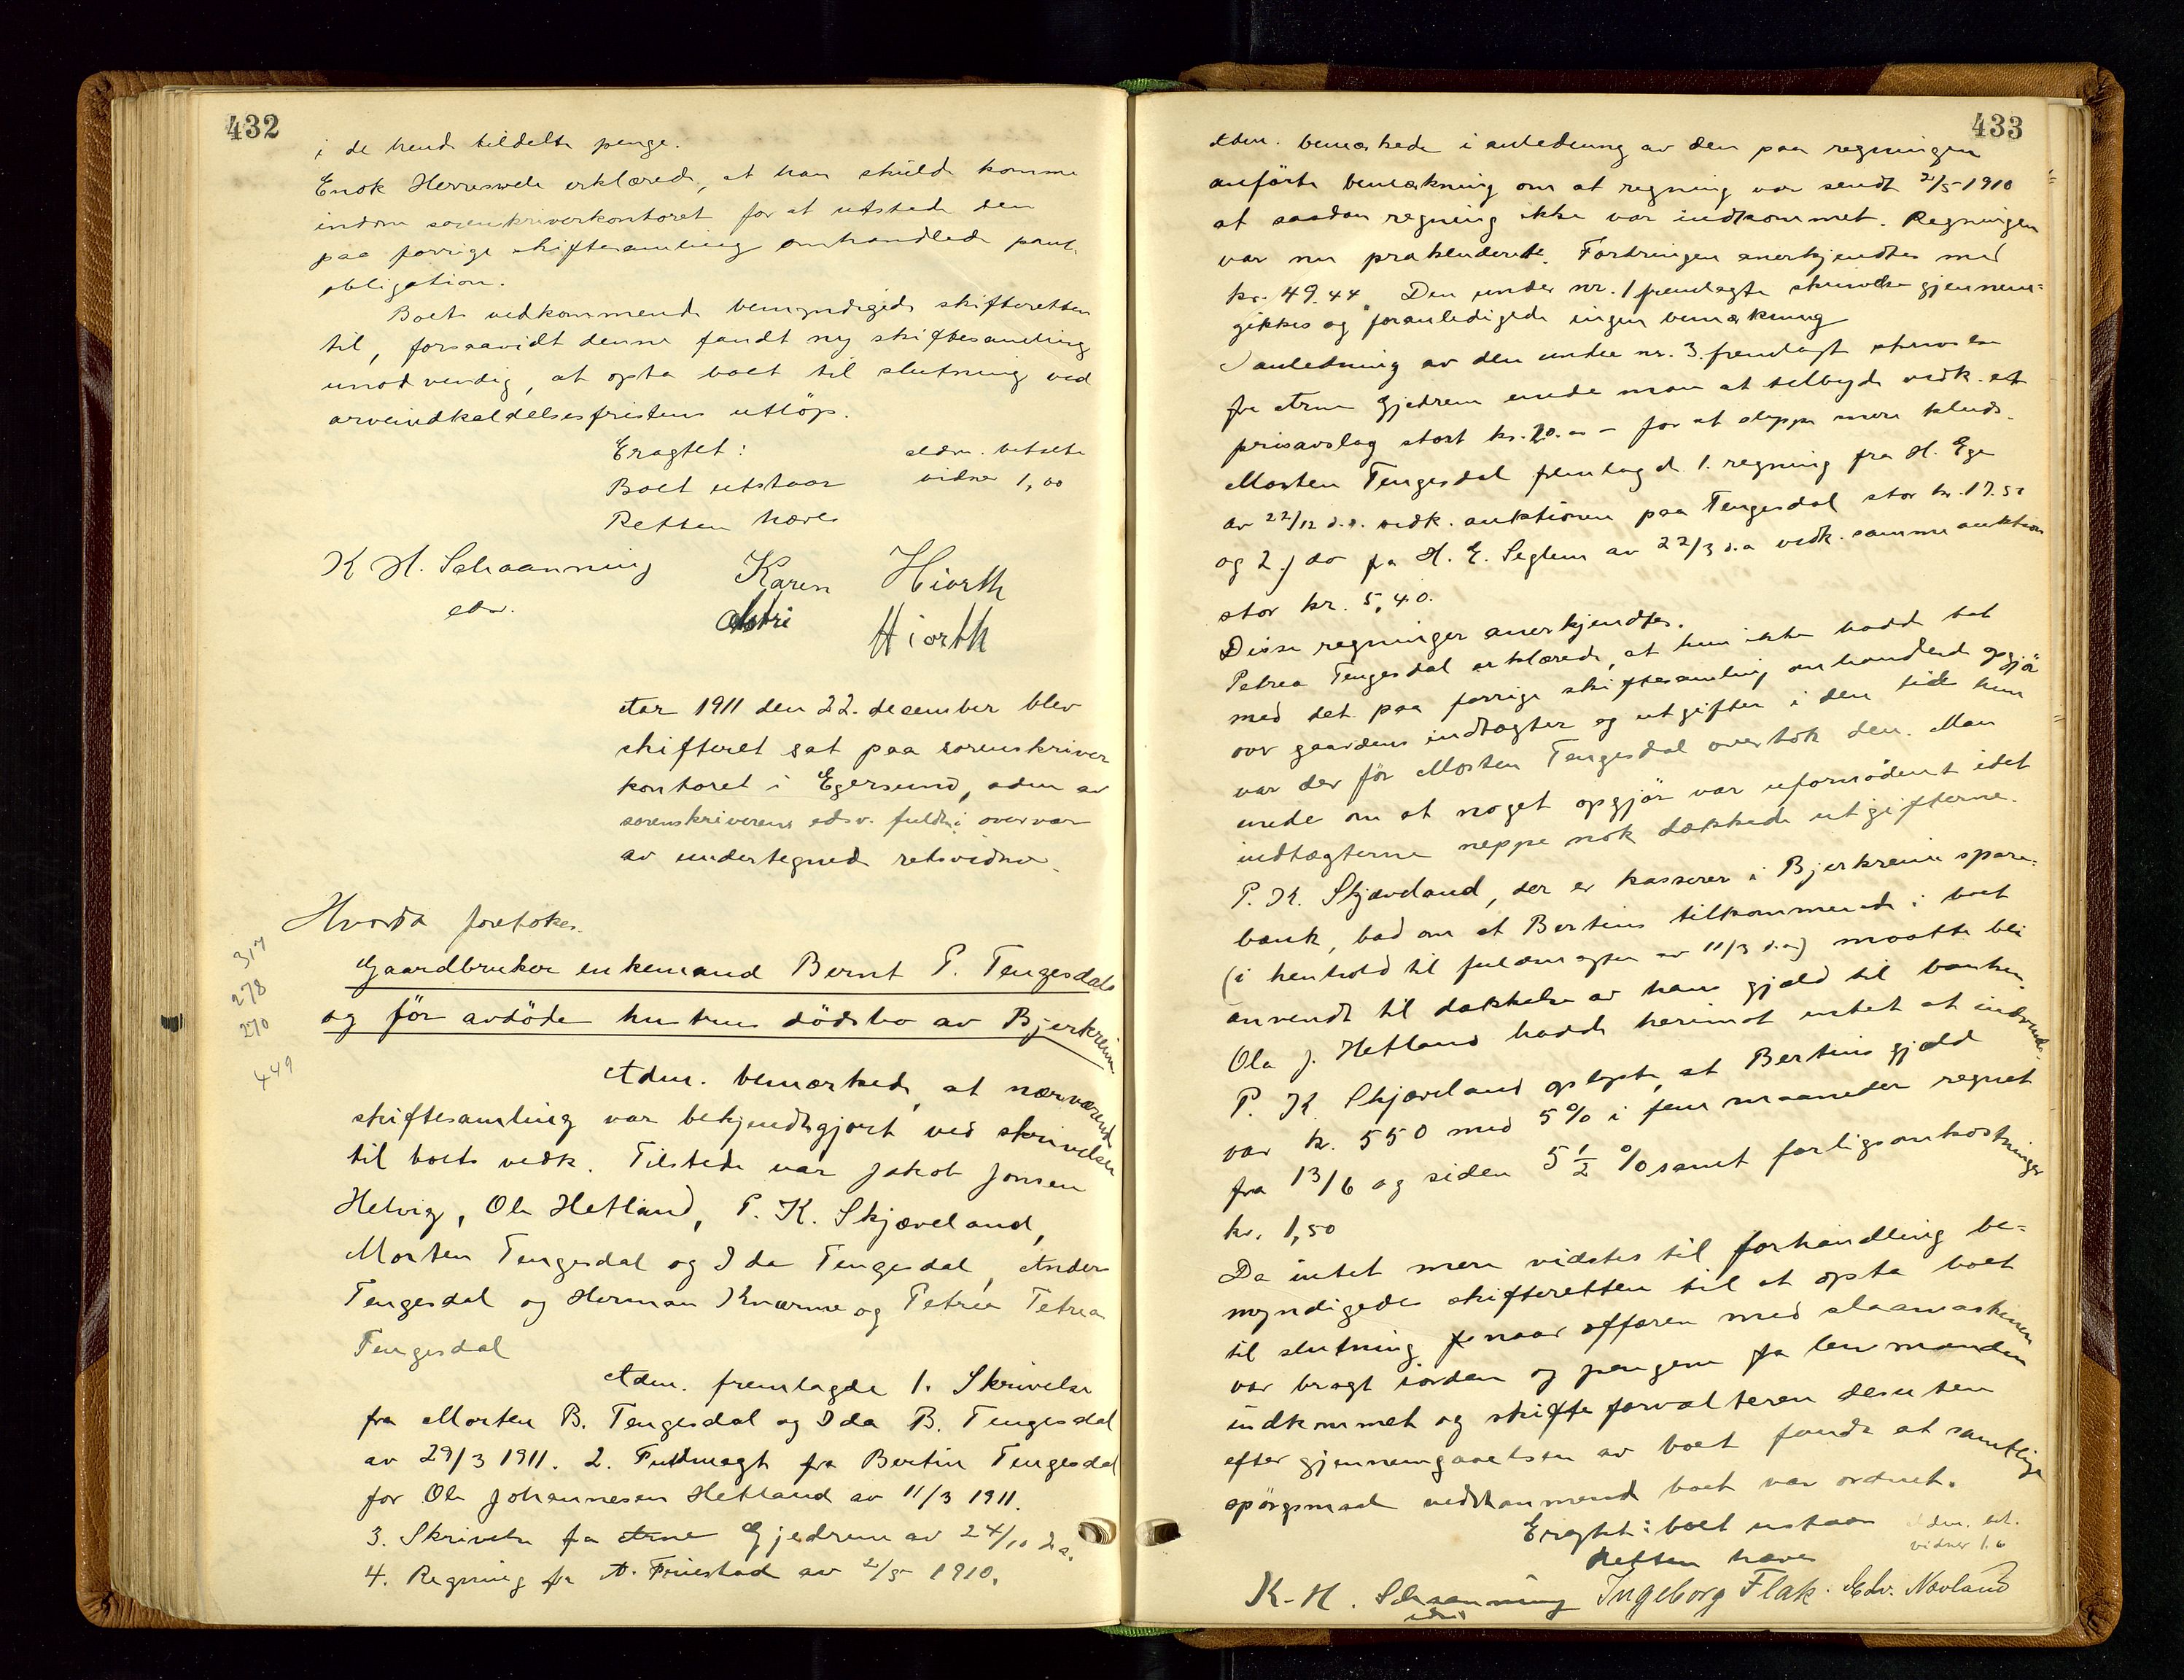 432
i de hend. tildelte penge.
Enok Herreswele erklærede, at han skulde komme
indom sorenskriverkontoret for at utstede den
paa forrige skiftesamling omhandlede pant-
obligation.
Boets vedkommende bemyndigede skifteretten
til, forsaavidt denne fandt ny skiftesamling
unødvendig, at opta boet til slutning ved
arveindkaldelsesfristens utløp.
Eragtet: adm. betalte
Boet utstaar vidner 1,00
Retten hævet
K H. Schaanning Karen Hiorth
edsv. Astri Hiorth
Aar 1911 den 22. december blev
skifteret sat paa sorenskriver
kontoret i Egersund, adm av
sorenskriverens edsv. fuldm. i overvær
av undertegnede retsvidner.
Hvorda foretokes.
317
278
270
449
Gaardbruker enkemand Bernt P. Tengesdals
og før avdøde hustrus dödsbo av Bjerkreim.
Adm. bemærkede, at nærværende
skiftesamling var bekjendtgjort ved skrivelse
til boets vedk. Tilstede var Jakob Jonsen
Helvig, Ole Hetland, P. K. Skjæveland,
Morten Tengesdal og Ida Tengesdal, Anders
Tengesdal og Herman Kværme og Petrea Petrea
Tengesdal
Adm. fremlagde 1. Skrivelse
fra Morten B. Tengesdal og Ida B. Tengesdal
av 29/3 1911. 2. Fuldmagt fra Bertin Tengesdal
for Ole Johannesen Hetland av 11/3 1911.
3. Skrivelse fra Arne Gjedrem av 24/10 d.a.
4. Regning fra A. Friestad av 2/5 1910.
433
Adm. bemærkede i anledning av den paa regningen
anførte bemærkning om at regning var sendt 2/5 1910
at saadan regning ikke var indkommet. Regningen
var nu prækluderet. Fordringen anerkjendtes med
kr. 49.44. Den under nr. 1 fremlagte skrivelse gjennem-
gikkes og foranledigede ingen bemærkning
I anledning av den under nr. 3. fremlagt skrivelse
fra Arne Gjedrem enede man at tilbyde vedk. et
prisavslag stort kr. 20.00 – for at slippe mere kluds.
Morten Tengesdal fremlagde 1. regning fra H. Ege
av 22/12 d.a. vedk. auktionen paa Tengesdal stor kr. 17.50
og 2.) do fra H. E. Seglem av 22/3 d.a vedk. samme auktion
stor kr. 5,40.
Disse regninger anerkjendtes.
Petrea Tengesdal erklærede, at hun ikke hadde tat
med det paa forrige skiftesamling omhandlede opgjør
over gaardens indtægter og utgifter i den tid hun
var der før Morten Tengesdal overtok den. Man
enede om at noget opgjør var ufornødent idet
indtægterne neppe nok dækkede utgifterne.
P. K. Skjæveland, der er kasserer i Bjerkreim spare-
bank, bad om at Bertins tilkommende i boet
(i henhold til fuldmagten av 11/3 d.a) maatte bli
anvendt til dækkelse av hans gjæld til banken.
Ola J. Hetland hadde herimot intet at indvende.
P. K. Skjæveland oplyste, at Bertins gjæld
var kr. 550 med 5% i fem maaneder regnet
fra 13/6 og siden 5 1/2 % samt forligsomkostninger
kr. 1,50
Da intet mere vidstes til forhandling be-
myndigede skifteretten til at opta boet
til slutning naar affæren med slaamaskinen
var bragt i orden og pengene fra lensmanden
indkommet og skifteforvalteren desuten
efter gjennemgaaelsen av boet fandt at samtlige
spørgsmaal vedkommende boet var ordnet.
Eragtet: boet utstaar adm. bet.
Retten hævet vidner 1.00
K-H. Schaanning Ingeborg Flak. Edv. Novland
edsv